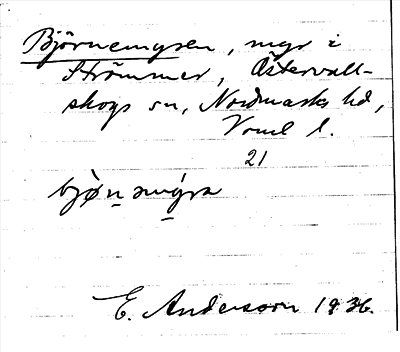 Björnemyren, myr i
Strömmer, Östervall-
skogs sn, Nordmarks hd,
Värml l.
21
E. Anderson 1936.